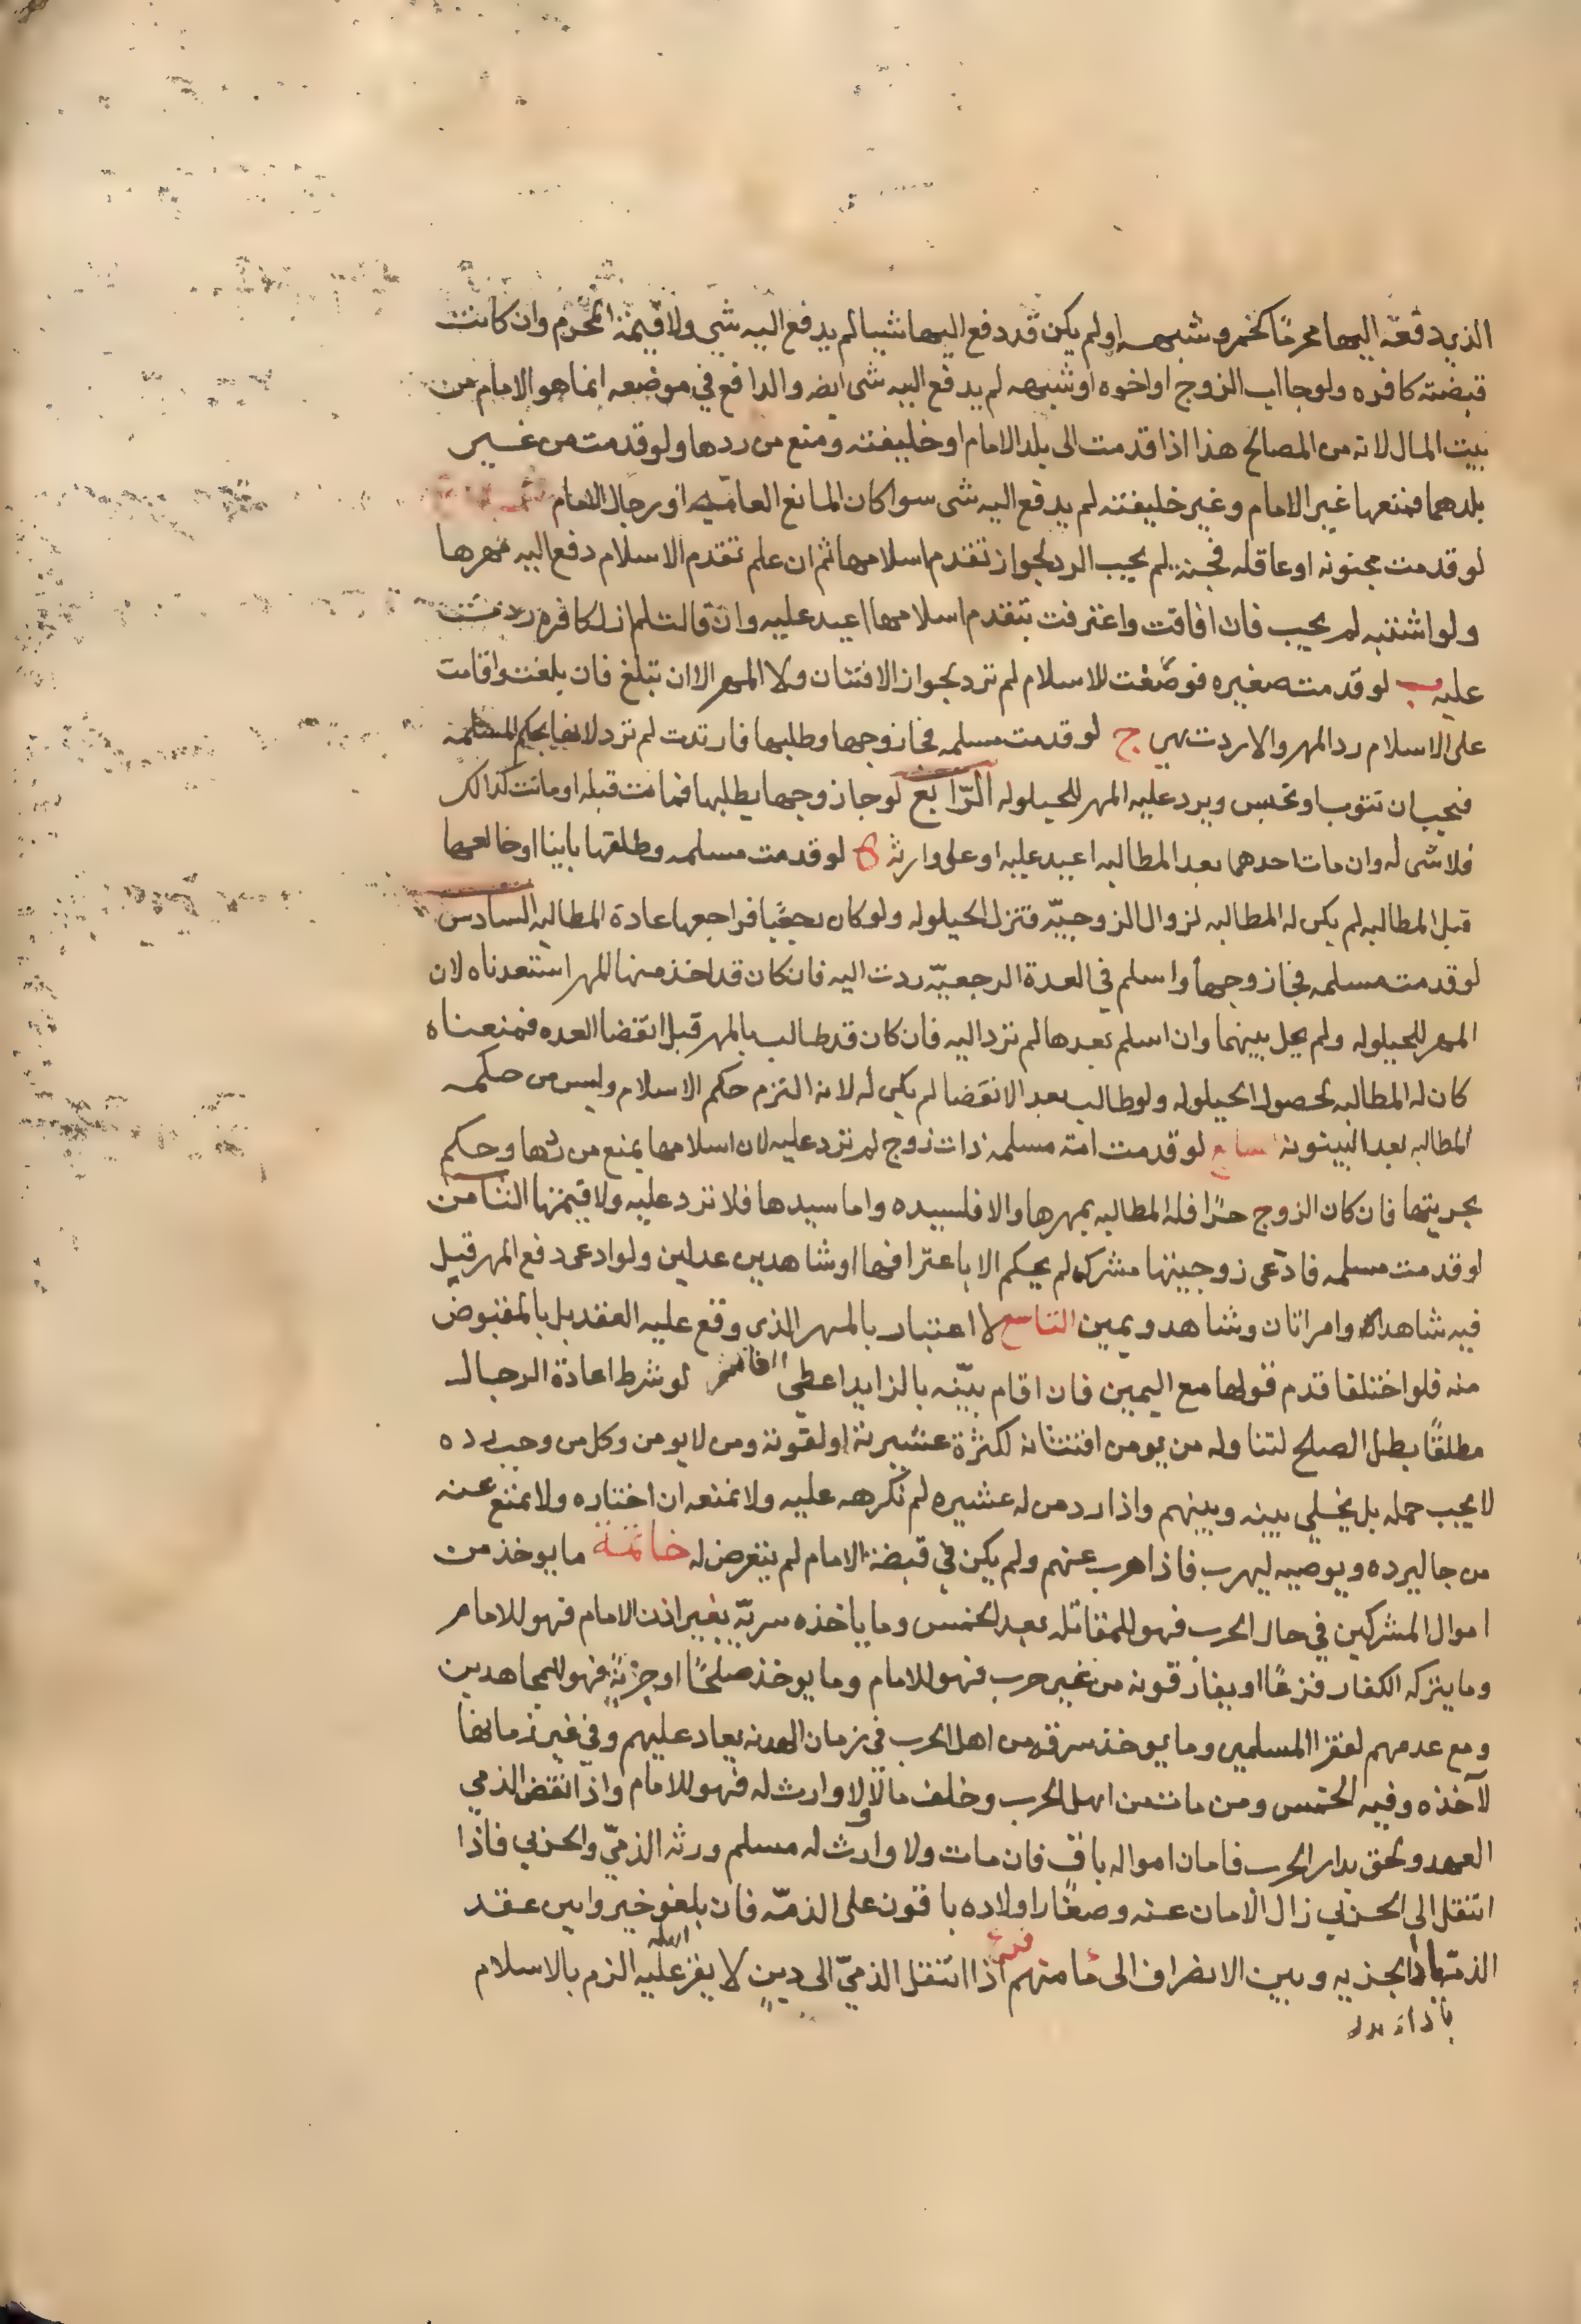 الذي دفعه اليها محرمًا كخمر وشبهه او لم يكن قد دفع اليها شيا لم يدفع اليه شي ولا قيمة المحرم وان كانت
قبضته كافره ولو جا اب الزوج او اخوه او شبهه لم يدفع اليه شي ايضه والدافع في موضعه انما هو الامام من
بيت المال لانه من المصالح هذا اذا قدمت الى بلد الامام او خليفته ومنع من ردها ولو قدمت من غير
بلدهما فمنعها غير الامام وغير خليفته لم يدفع اليه شي سوا كان المانع العامّه او رجال الامام
لو قدمت مجنونه او عاقله فجنت لم يجب الرد لجواز تقدم اسلامها ثم ان علم تقدم الاسلام دفع اليه مهرها
ولو اشتبه لم يجب فان افاقت واعترفت بتقدم اسلامها اعيد عليه وان قالت لم ازل كافره ردت
عليه ب لو قدمت صغيره فوصفت الاسلام لم ترد لجواز الافتتان ولا المهر الا ان تبلغ فان بلغت واقامت
على الاسلام رد المهر والا ردت هي ج لو قدمت مسلمه فجا زوجها وطلبها فارتدت لم ترد لانها بحكم المسلمة
فيجب ان تتوب او تحبس ويرد عليه المهر للحيلوله الرّابع لو جا زوجها يطلبها فماتت قبله او مات كذالك
فلا شي له وان مات احدهما بعد المطالبه اعيد عليه او على وارثه ه لو قدمت مسلمه وطلقها باينا او خالعها
قبل المطالبه لم يكن له المطالبه لزوال الزوجيّه فتزل الحيلوله ولو كان رجعيًا فراجعها عادة المطالبه السادس
لو قدمت مسلمه فجا زوجها واسلم في العدة الرجعيّه ردت اليه فان كان قد اخذ منها المهر استعدناه لان
المهر للحيلوله ولم يحل بينهما وان اسلم بعدها لم ترد اليه فان كان قد طالب بالمهر قبل انقضا العده فمنعناه
كان له المطالبه لحصول الحيلوله ولو طالب بعد الانقضا لم يكن له لانه التزم حكم الاسلام وليس من حكمه
المطالبه بعد البينونه سابع لو قدمت امته مسلمه ذات زوج لم ترد عليه لان اسلامها يمنع من ردها وحكم
بحريتها فان كان الزوج حرًا فله المطالبه بمهرها والا فلسيده واما سيدها فلا ترد عليه ولا قيمتها الثامن
لو قدمت مسلمه فادّعى زوجيتها مشرك لم يحكم الا باعترافها او شاهدين عدلين ولو ادعى دفع المهر قبل
فيه شاهداه وامراتان وشاهد ويمين التاسع لا اعتبار بالمهر الذي وقع عليه العقد بل بالمقبوض
منه فلو اختلفا قدم قولها مع اليمين فان اقام بيّنه بالزايد اعطى لو شرط اعادة الرجال
مطلقًا بطل الصلح لتناوله من يومن افتتانه لكثرة عشيرته او لقوته ومن لا يومن وكل من وجب رده
لا يجب حمله بل يخلي بينه وبينهم واذا رد من له عشيره لم نكرهه عليه ولا نمنعه ان اختاره ولا نمنع عنه
من جا ليرده ويوصيه ليهرب فاذا هرب عنهم ولم يكن في قبضة الامام لم يتعرض له خاتمة ما يوخذ من
اموال المشركين في حال الحرب فهو للمقاتله بعد الخمس وما ياخذه سريّه بغير اذن الامام فهو للامام
وما يتركه الكفار فزعًا او يفارقونه من غير حرب فهو للامام وما يوخذ صلحًا او جزيةً فهو للمجاهدين
ومع عدمهم لفقرا المسلمين وما يوخذ سرقه من اهل الحرب في زمان الهدنه يعاد عليهم وفي غير زمانها
لآخذه وفيه الخمس ومن مات من اهل الحرب وخلف مالا ولا وارث له فهو للامام واذا نقض الذمي
العهد ولحق بدار الحرب فامان امواله باق فان مات ولا وارث له مسلم ورثه الذميّ والحربي فاذا
انتقل الى الحربي زال الامان عنه وصغار اولاده باقون على الذمّه فان بلغو خيروا بين عقد
الذمه باذا الجزيه وبين الانصراف الى مامنهم اذا انتقل الذميّ الى دينٍ لا يقر عليه اهله الزم بالاسلام